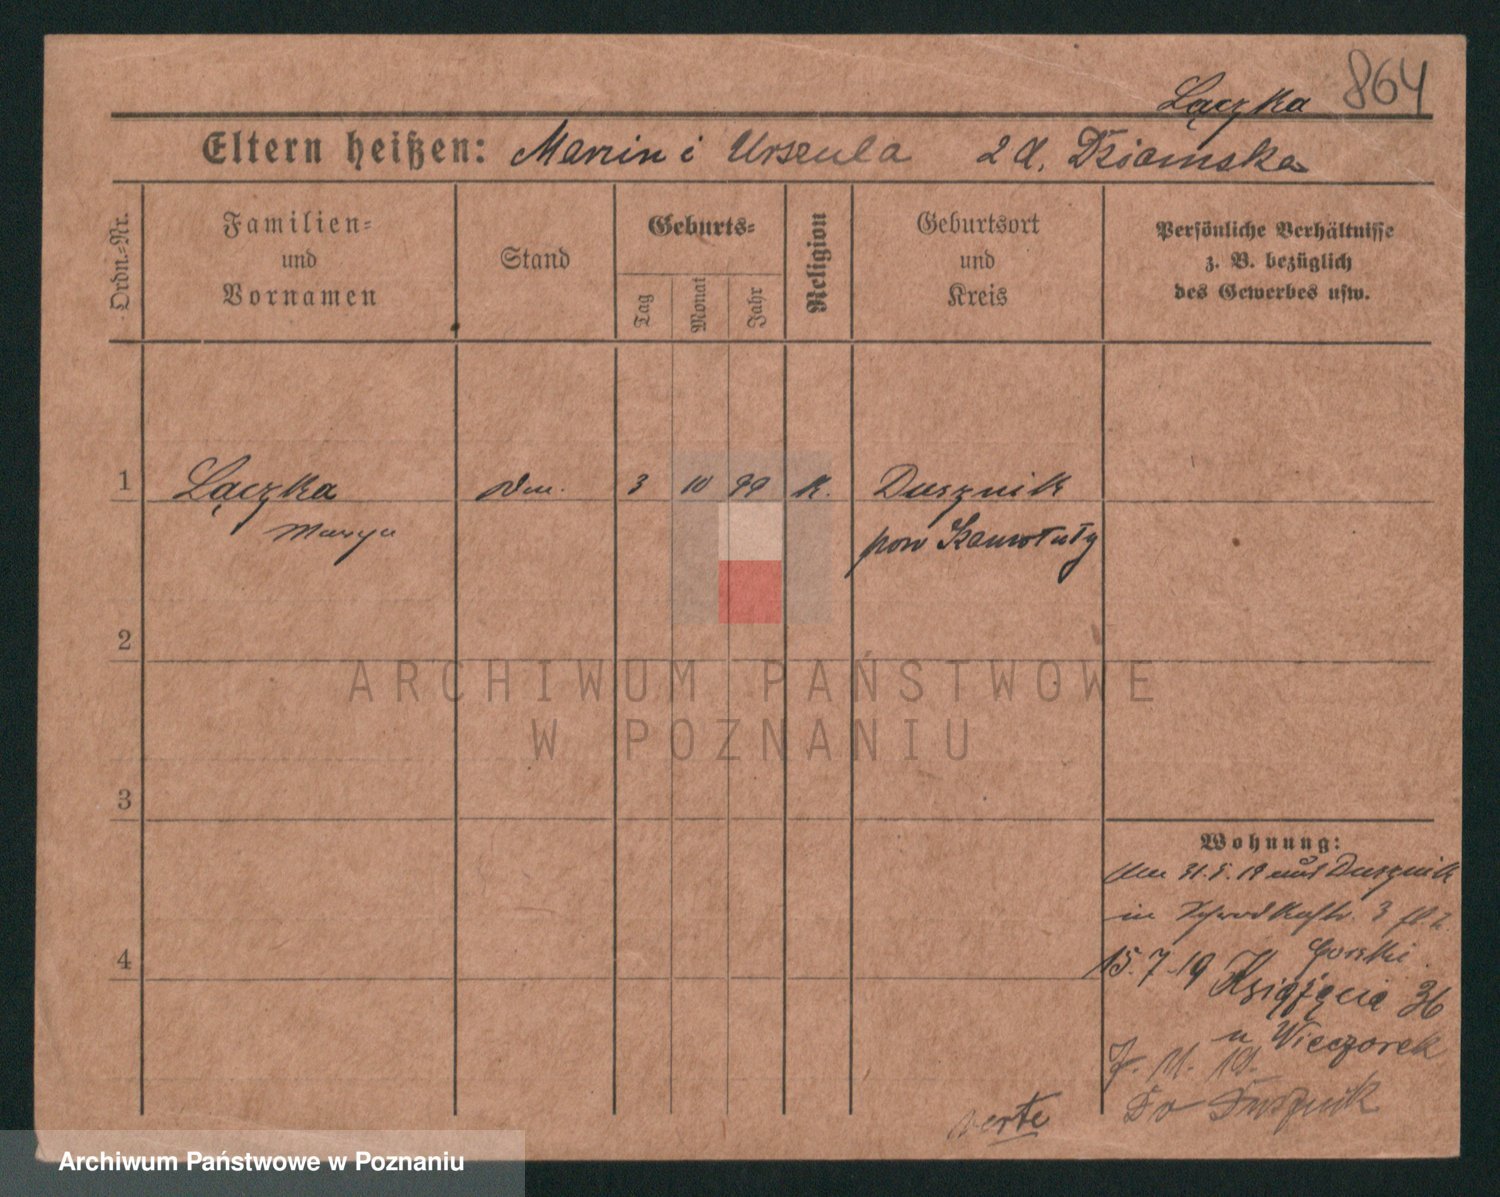 864
Łączka
Eltern heißen: Marcin i Urszula z d. Dziamska
Ordn.-Nr.
Familien-
und
Vornamen
Stand
Geburts-
Tag
Monat
Jahr
Religion
Geburtsort
und
Kreis
Persönliche Verhältnisse
z. B. bezüglich
des Gewerbes usw.
1 Łączka 3 10 99 k. Dusznik
Marya pow Szamotuły
2
ARCHIWUM PAŃSTWOWE
W POZNANIU
3
Wohnung:
31.5.19 aus Dusznik
in 3
Gorski
4
15.7.19 Książęca 36
u Wieczorek
7.11.19.
Dusznik
verte
Archiwum Państwowe w Poznaniu